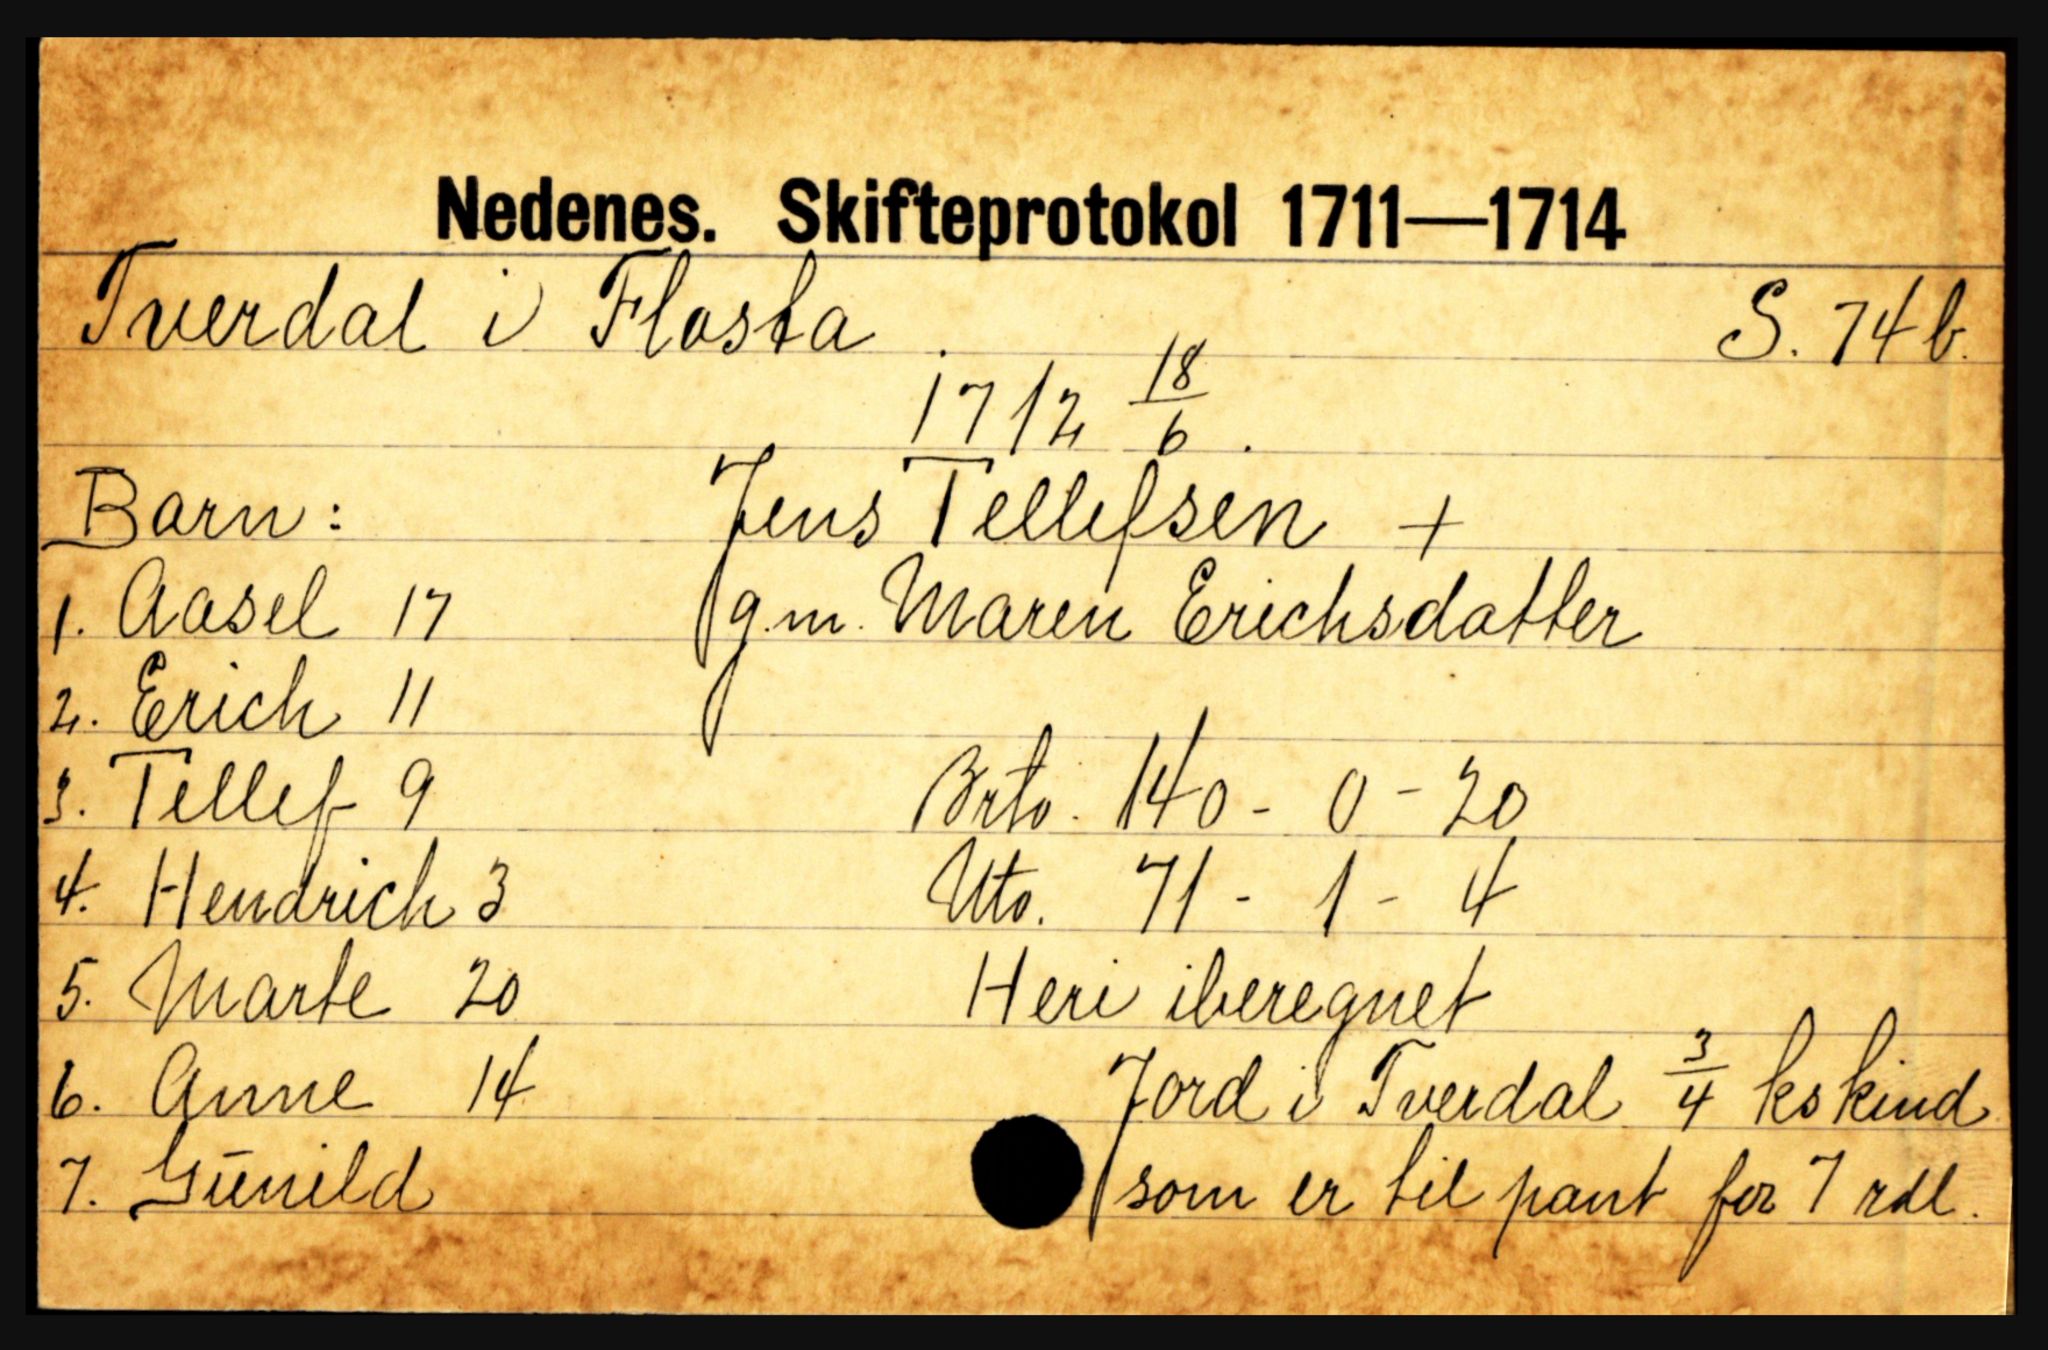 Nedenes. Skifteprotokol 1711—1714
Tverdal i Flosta. S. 74b.
1712 18/6.
Barn: Jens Tellefsen +
1. Aasel 17 g.m. Maren Erichsdatter
2. Erich 11
3. Tellef 9 Brto. 140 - 0 - 20
4. Hendrich 3 Nto. 71 - 1 - 4
5. Marte 20 Heri iberegnet
6. Anne 14 Jord i Tverdal 3/4 kskind
7. Gunild som er til pant for 7 rdl.